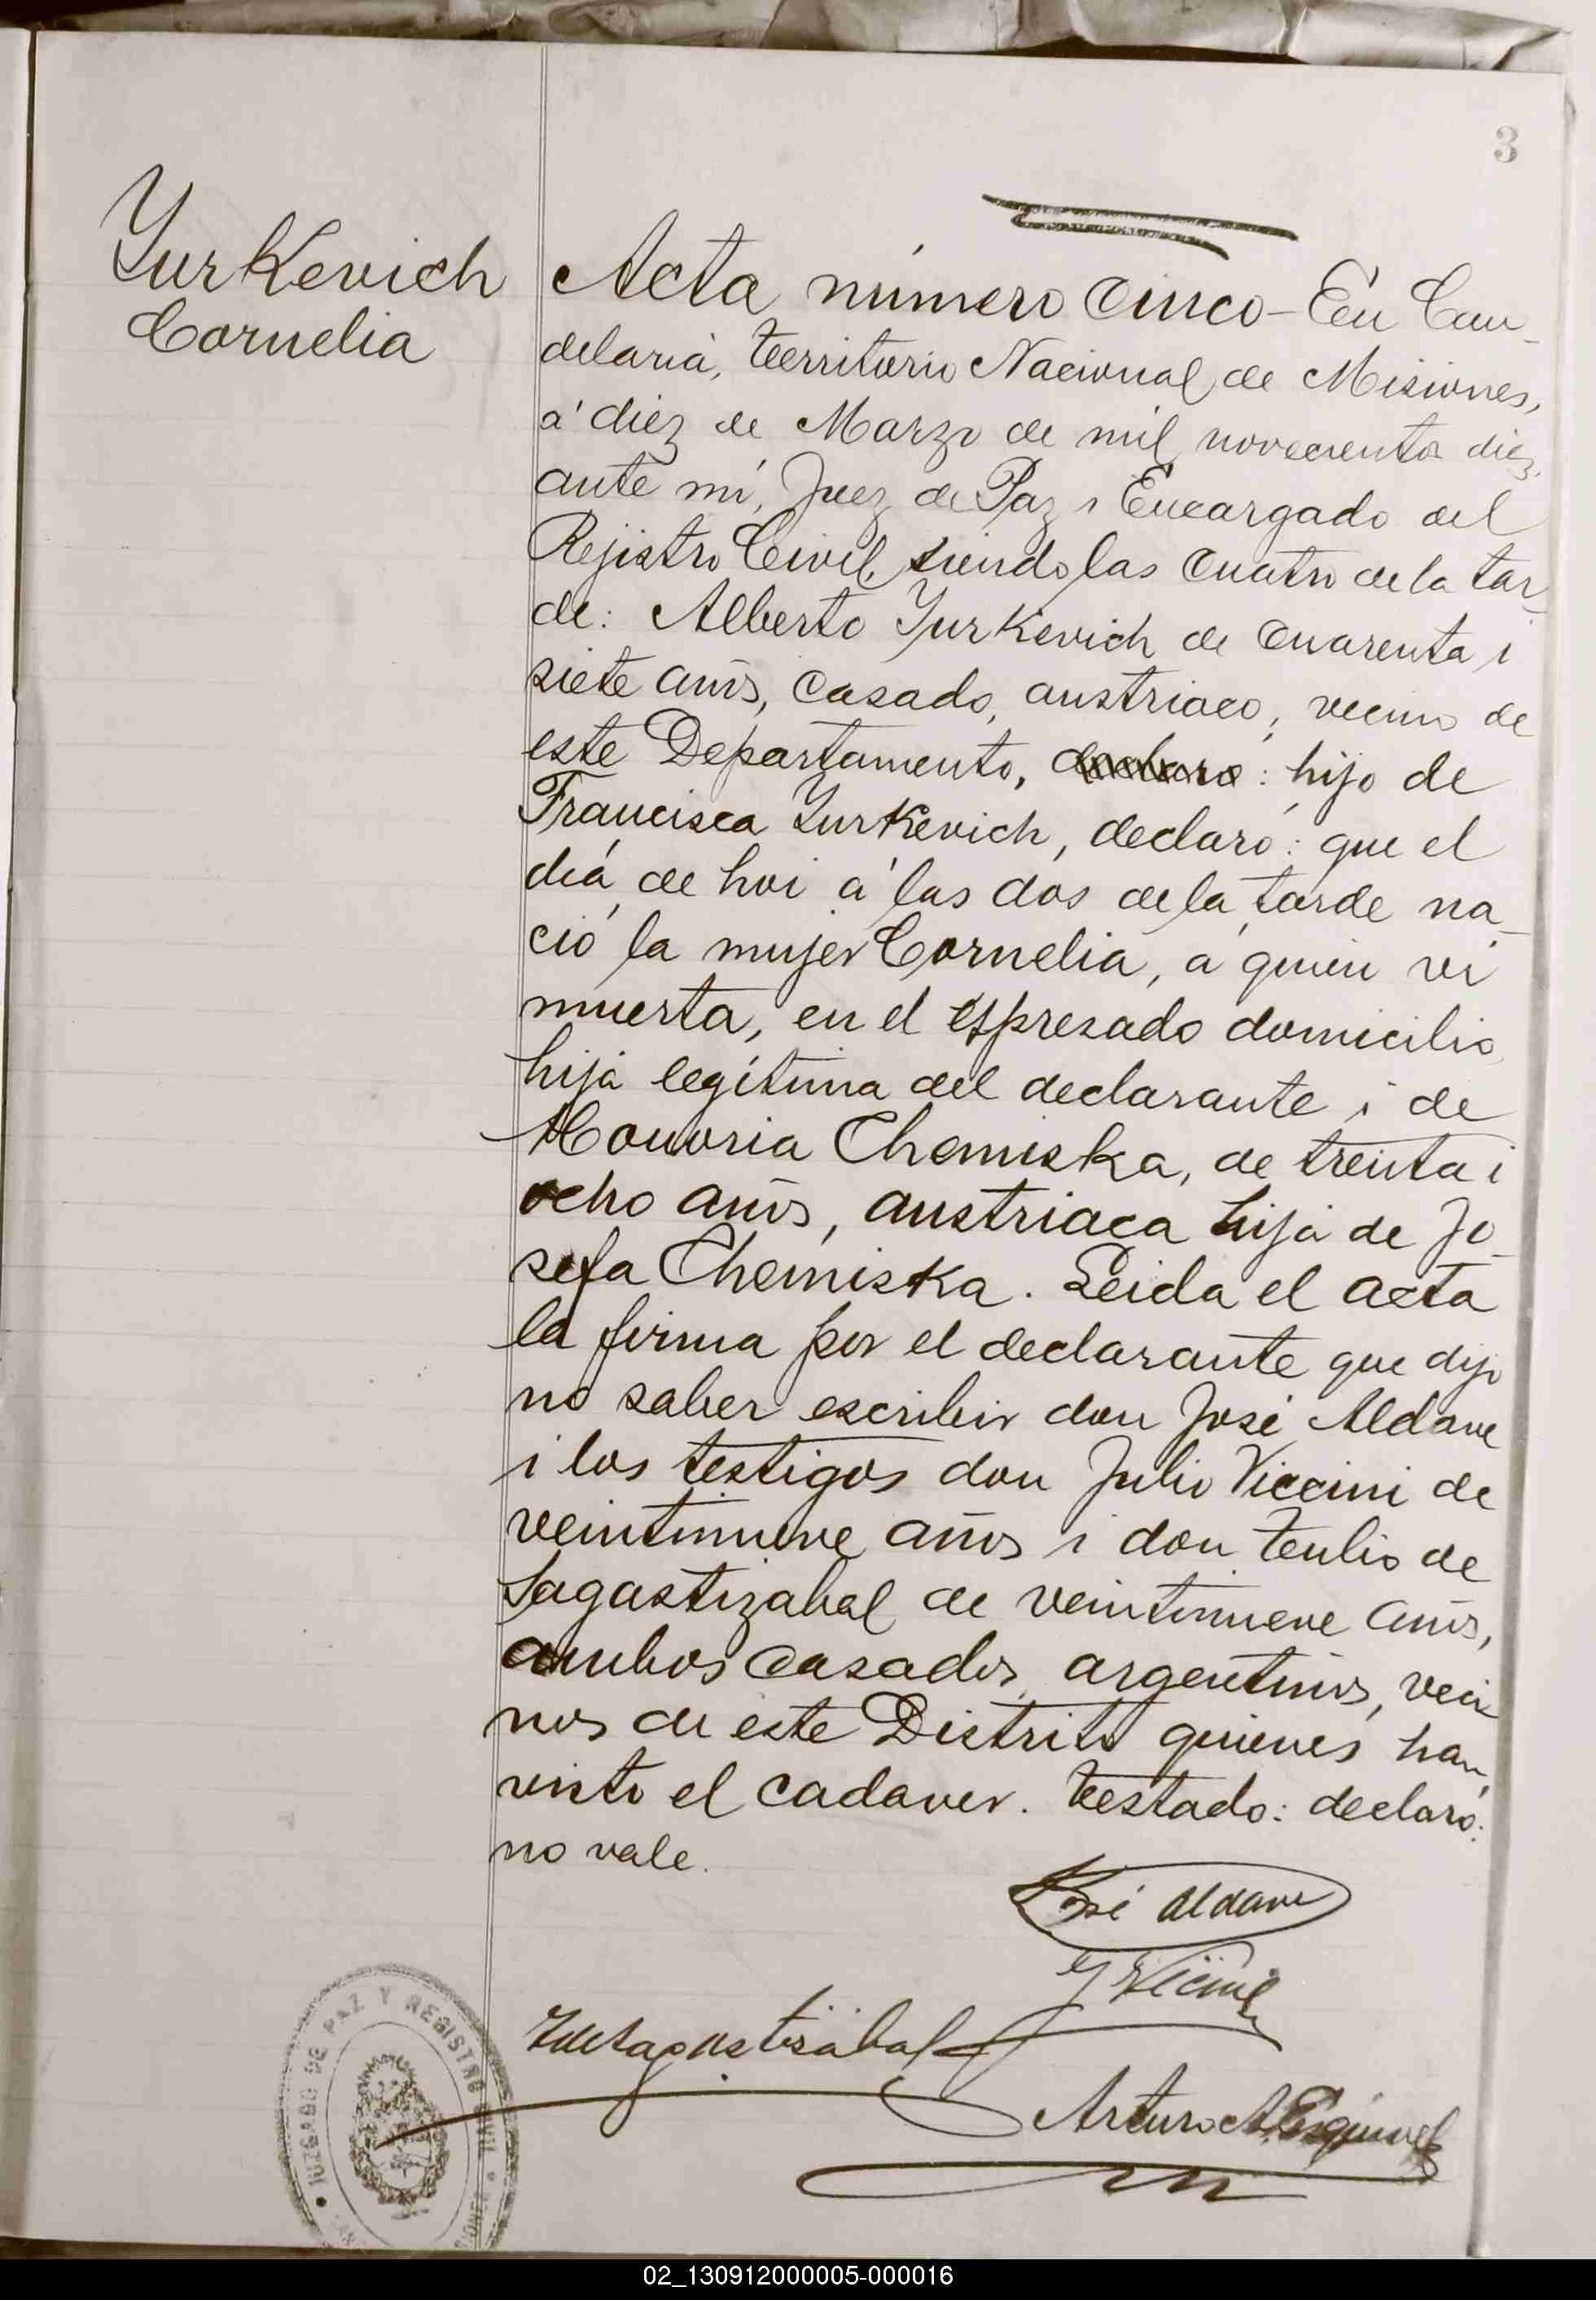 3
Yurkevich
Cornelia
Acta número cinco - En Can-
delaria, territorio Nacional de Misiones,
á diez de Marzo de mil novecientos diez,
ante mí, Juez de Paz i Encargado del
Rejistro Civil, siendo las cuatro de la tar-
de: Alberto Yurkevich de cuarenta i
siete años, casado, austriaco, vecino de
este Departamento, declaró: hijo de
Francisca Yurkevich, declaró: que el
día de hoi á las dos de la tarde na-
ció la mujer Cornelia, á quien ví
muerta, en el espresado domicilio,
hija legítima del declarante i de
Honoria Chemiska, de treinta i
ocho años, austriaca hija de Jo-
sefa Chemiska. Leida el acta
la firma por el declarante que dijo
no saber escribir don José Aldave
i los testigos don Julio Viccini de
veintinueve años i don Tulio de
Sagastizabal de veintinueve años,
ambos casados, argentinos, veci-
nos de este Distrito quienes han
visto el cadaver. Testado: declaró:
no vale.
José Aldave
J Viccini
T de Sagastizábal
Arturo A. Esquivel
JUZGADO DE PAZ Y REGISTRO CIVIL
02_130912000005-000016